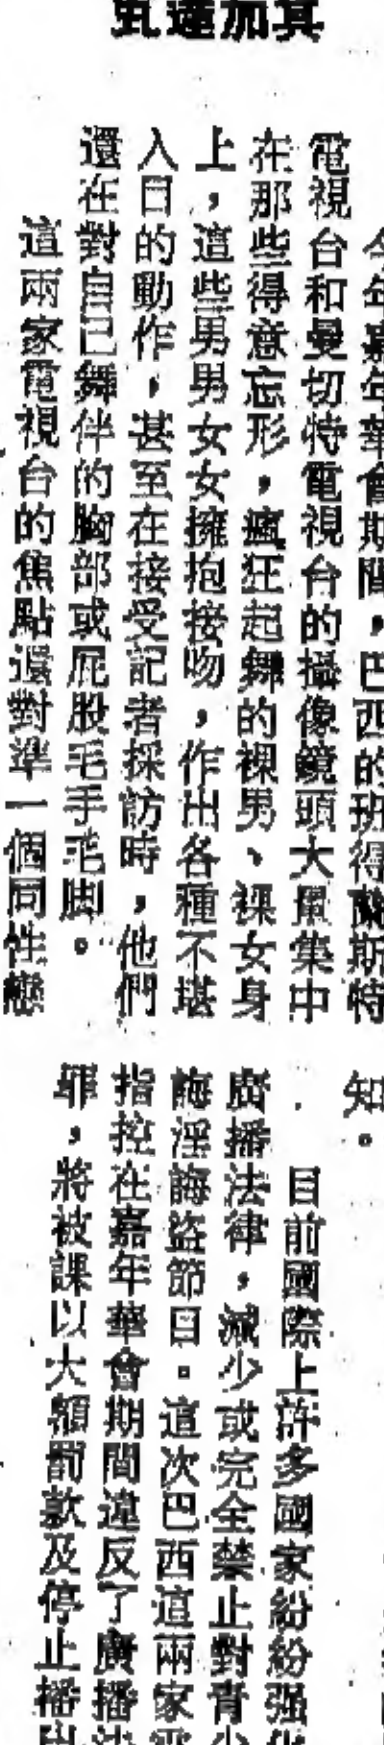 其加達
今年嘉年華會期間，巴西的班得蘭斯特
電視台和曼切特電視台的攝像鏡頭大量集中
在那些得意忘形，瘋狂起舞的裸男、裸女身
上，這些男男女女擁抱接吻，作出各種不堪
入目的動作，甚至在接受記者採訪時，他們
還在對自己舞伴的胸部或屁股毛手毛脚。
這兩家電視台的焦點還對準一個同性戀
知。
目前國際上許多國家紛紛强化
廣播法律，減少或完全禁止對青少
誨淫誨盜節目。這次巴西這兩家電
指控在嘉年華會期間違反了廣播法
罪，將被課以大額罰款及停止播出